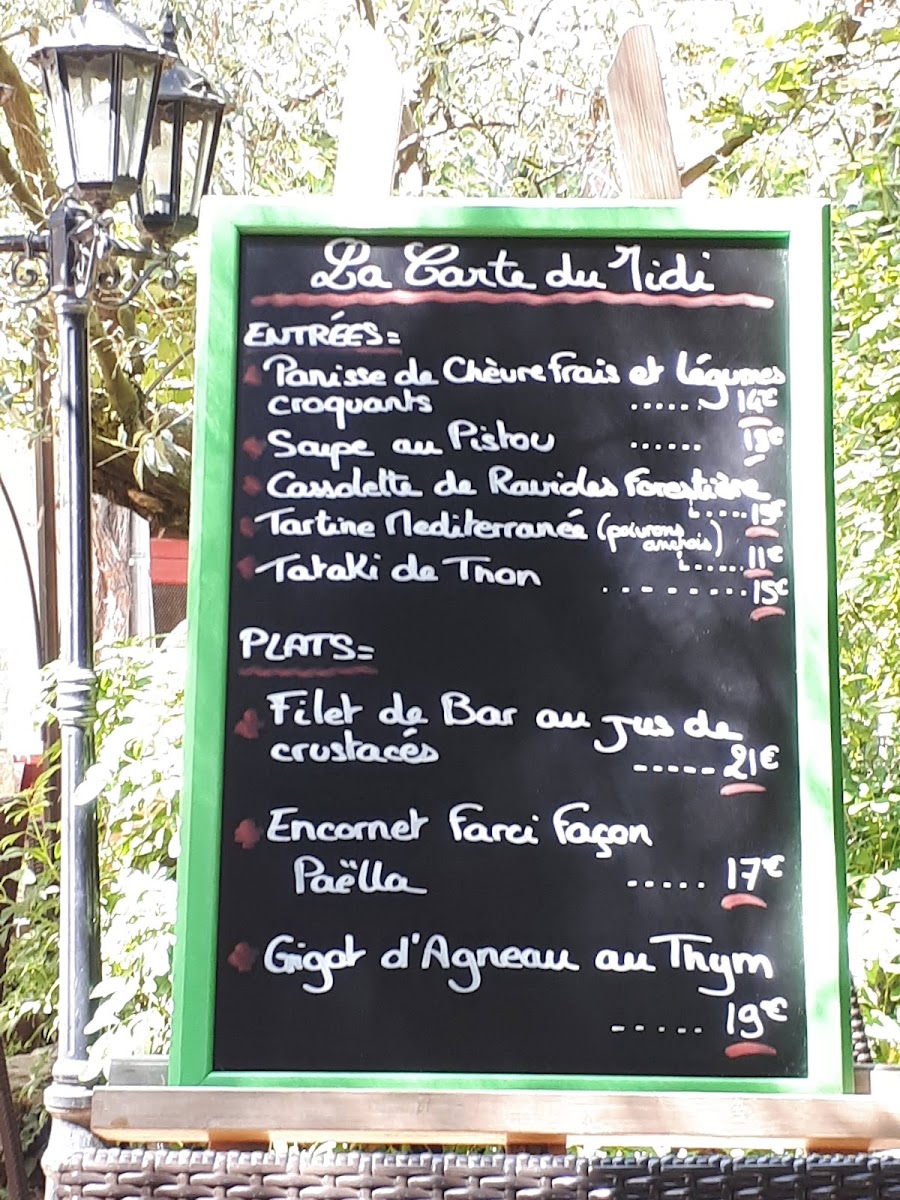 La Carte du Midi
ENTRÉES=
Panisse de Chèvre frais et légumes
croquants ...... 14€
Soupe au Pistou ...... 13€
Cassolette de Ravioles Forestière
..... 15€
Tartine Mediterranée (poivrons
anchois)
...... 11€
Tataki de Thon ......... 15€
PLATS=
Filet de Bar au jus de
crustacés ----- 21€
Encornet Farci Façon
Paëlla ..... 17€
Gigot d'Agneau au Thym
..... 19€